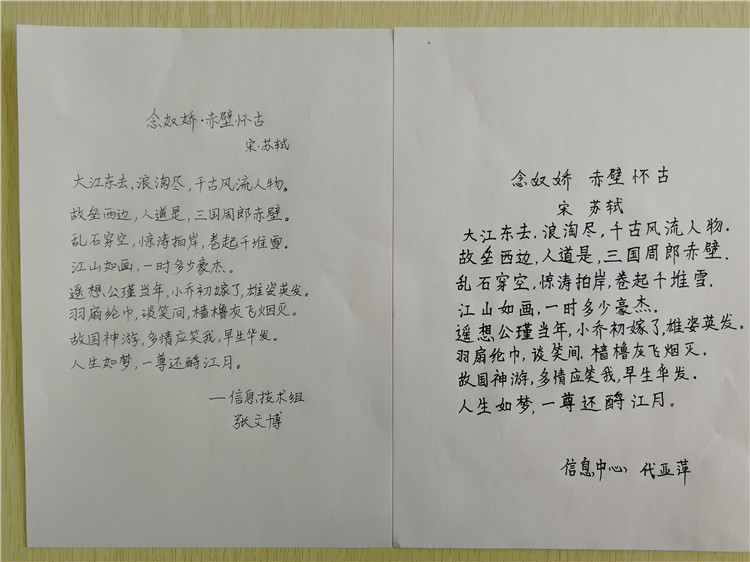 念奴娇·赤壁怀古
宋·苏轼
大江东去,浪淘尽,千古风流人物。
故垒西边,人道是,三国周郎赤壁。
乱石穿空,惊涛拍岸,卷起千堆雪。
江山如画,一时多少豪杰。
遥想公瑾当年,小乔初嫁了,雄姿英发。
羽扇纶巾,谈笑间,樯橹灰飞烟灭。
故国神游,多情应笑我,早生华发。
人生如梦,一尊还酹江月。
—信息技术组
张文博
念奴娇 赤壁怀古
宋 苏轼
大江东去,浪淘尽,千古风流人物.
故垒西边,人道是,三国周郎赤壁.
乱石穿空,惊涛拍岸,卷起千堆雪.
江山如画,一时多少豪杰。
遥想公瑾当年,小乔初嫁了,雄姿英发.
羽扇纶巾,谈笑间.樯橹灰飞烟灭。
故国神游,多情应笑我,早生华发.
人生如梦,一尊还酹江月。
信息中心 代亚萍